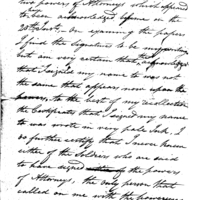 two powers of Attorney which appear
to been acknowledged before me on the
20th Inst, On examining the papers
I find the Signature to be my
but am very certain that, acknowledged
that I signed my name to was not
the same that appears now upon the
powers, to the best of my recollection
the background that I signed my name
to was wrote in very pale Ink, I
do further certify that I never knew
either of the Soldiers who are said
to have signed either of the powers
of Attorneys, the only person that
called on me with the